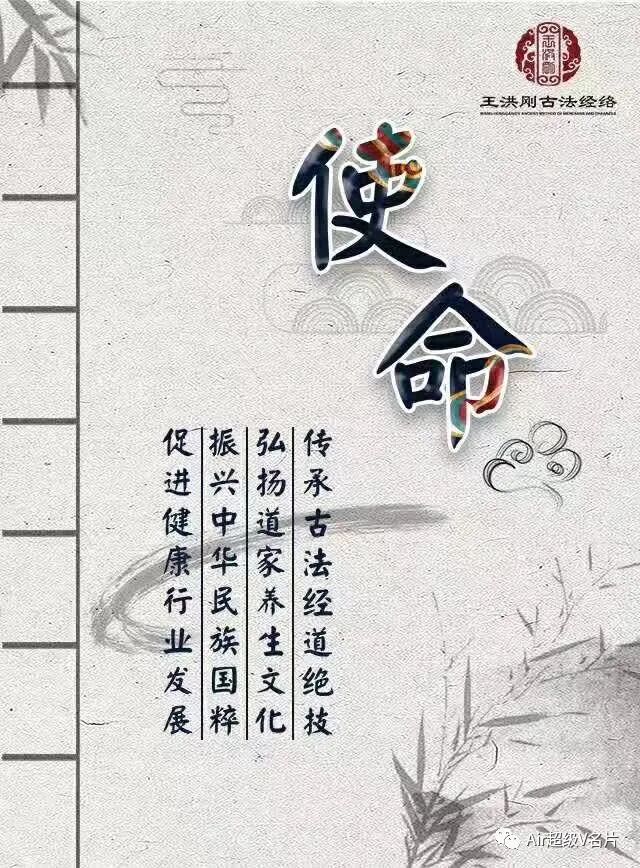 王洪刚古法经络
使命
传承古法经道绝技
弘扬道家养生文化
振兴中华民族国粹
促进健康行业发展
Air超级V名片